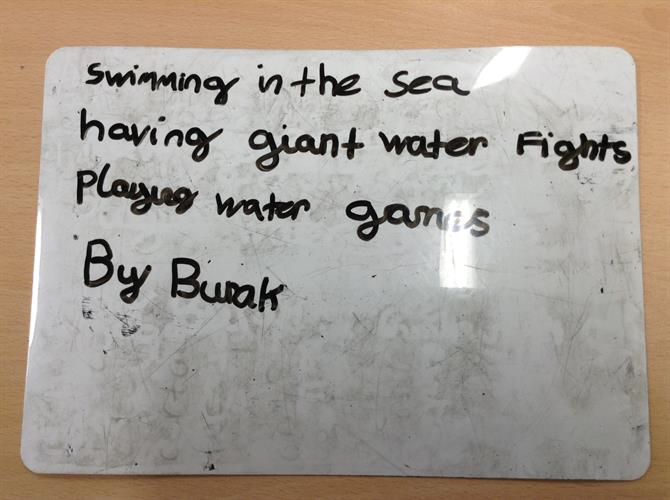 swimming in the sea
having giant water Fights
Playing water games
By Burak